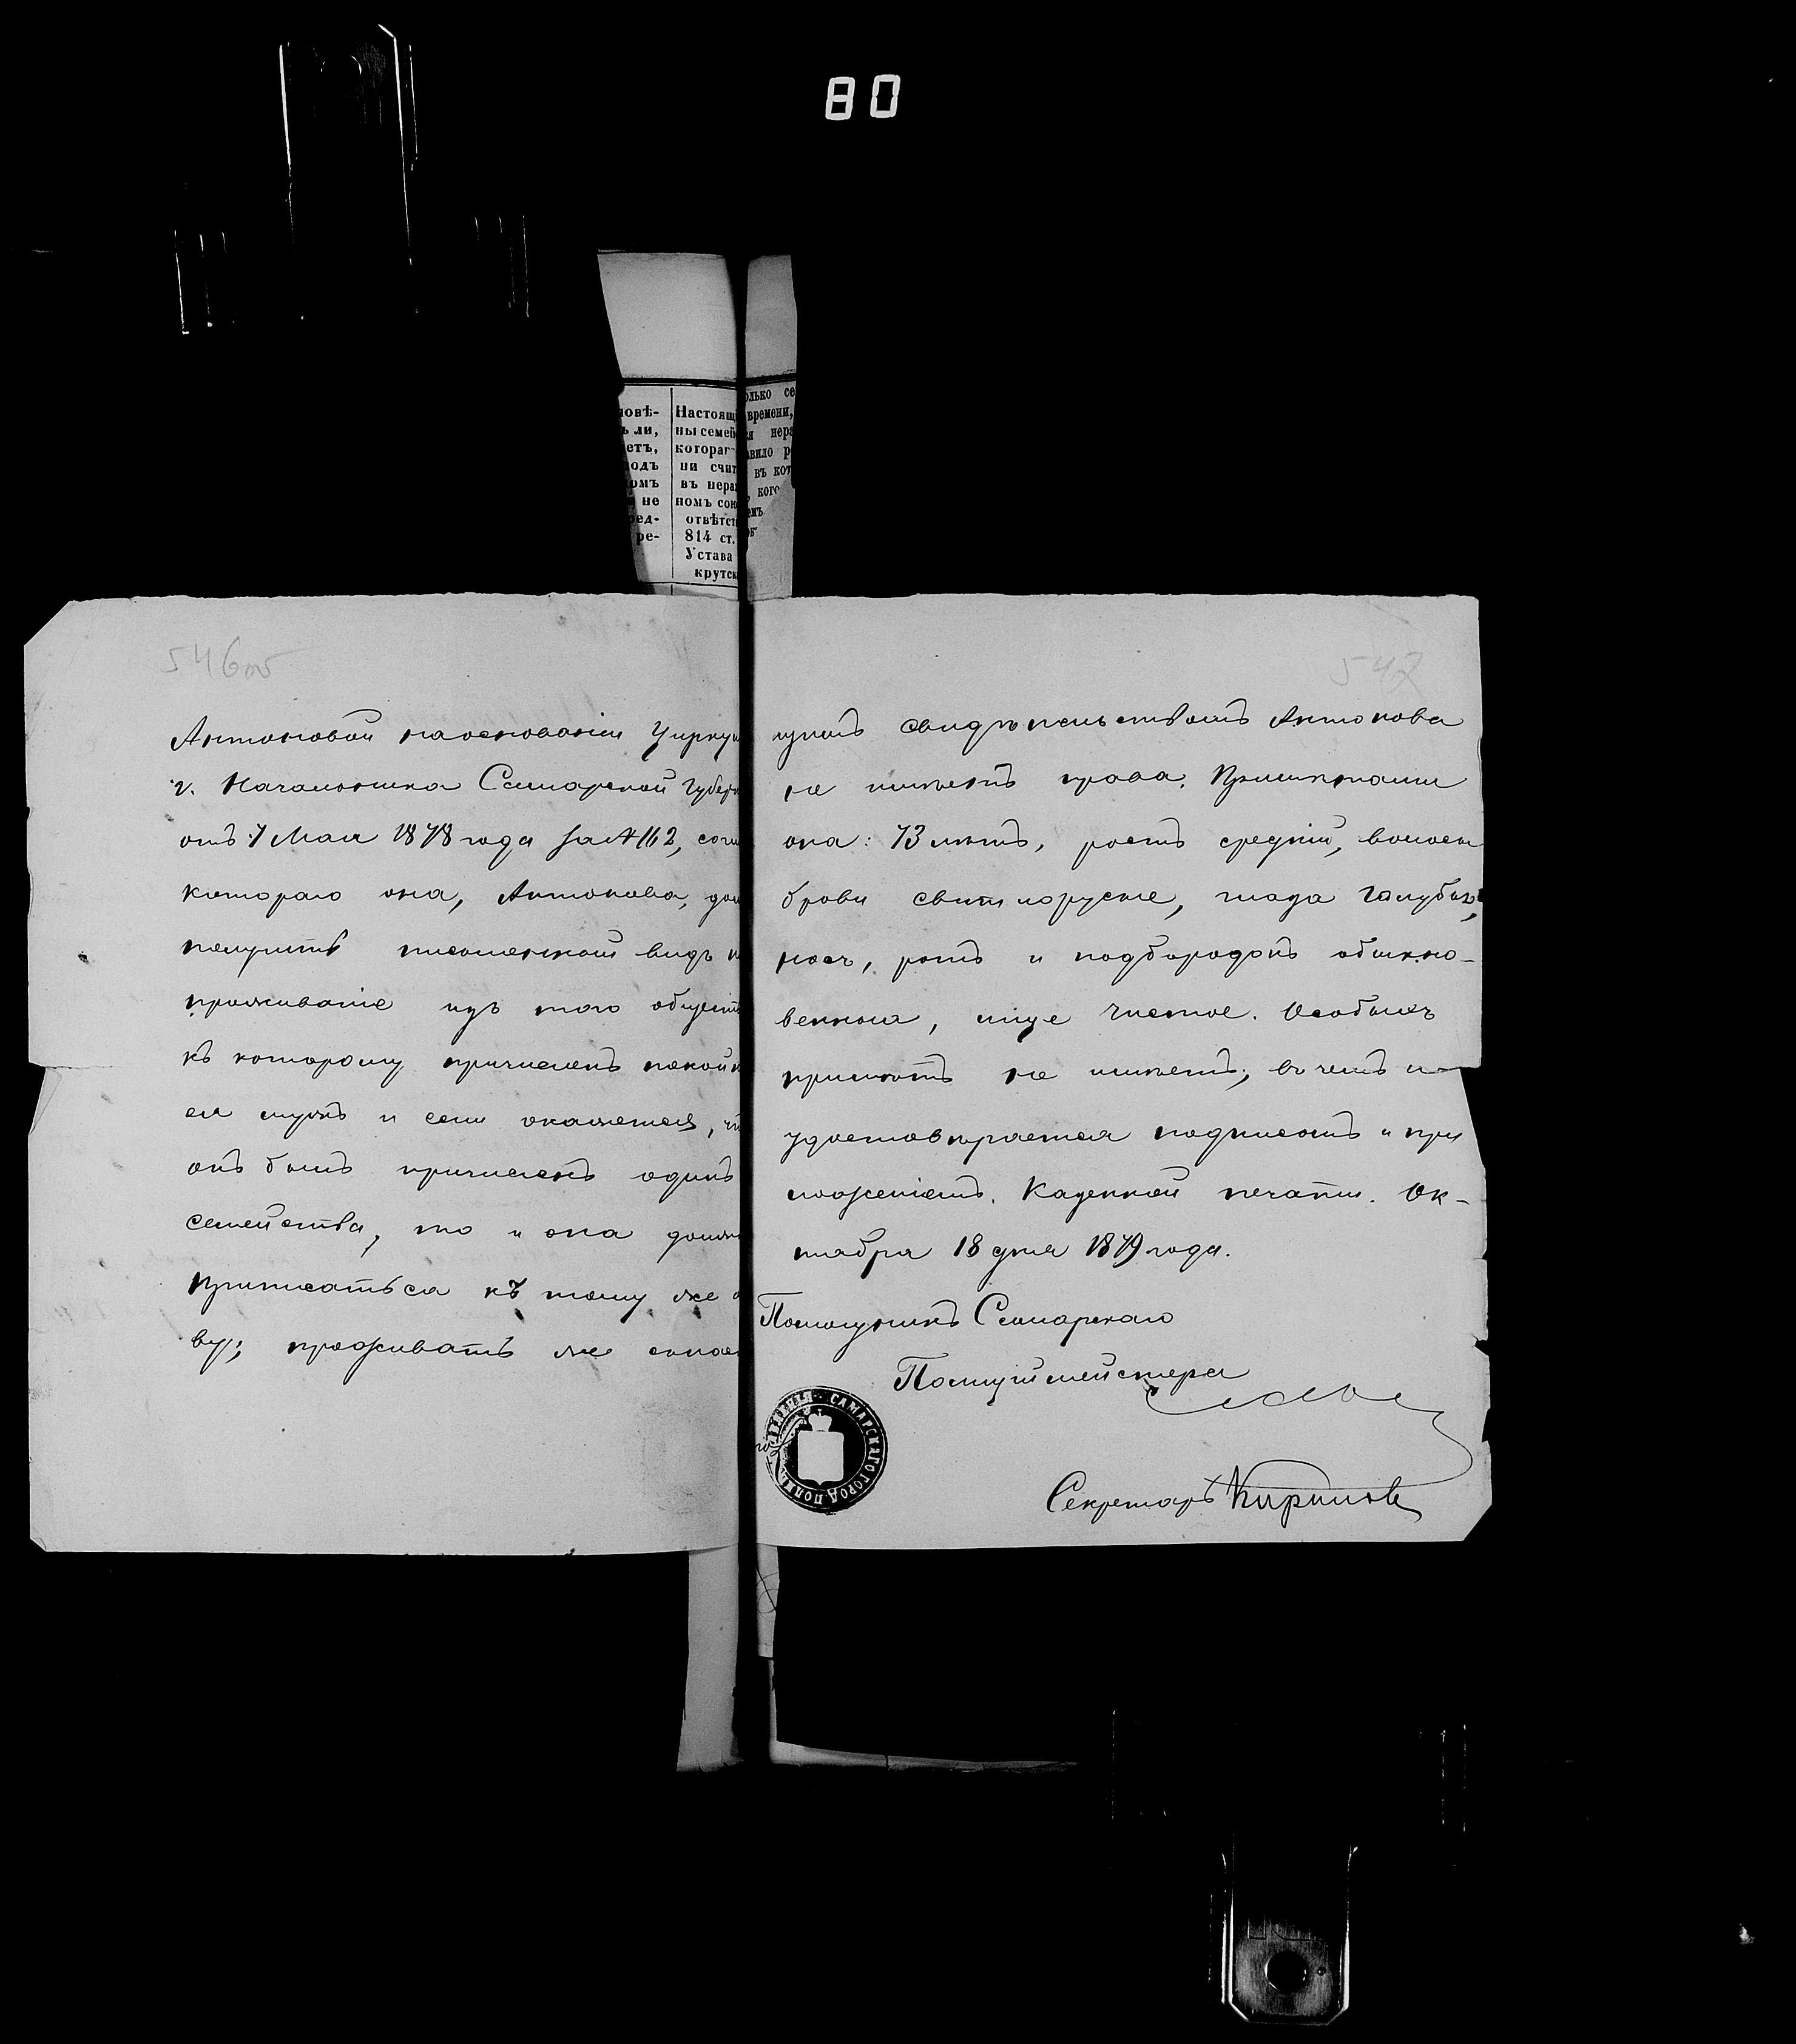 80
повѣ-
ь ли,
етъ,
одъ
омъ
не
ред-
ре-
Настоящ
ны семей
котораг
ни счит
въ нераз
номъ сою
отвѣтст
814 ст.
Устава
крутск
олько се
времени,
ся нера
авило р
въ кот
кого
емъ
546об
Антоновой на основаніи Цирку
г. Начальника Самарской Губер
отъ 7 Мая 1878 года за № 162, согл
котораго она, Антонова, дол
получить письменной видъ н
проживаніе изъ того общест
къ которому причисленъ покойн
ея мужъ и если окажется, чт
онъ былъ причисленъ одинъ
семейства, то и она должн
приписаться къ тому же о
ву; проживать же
547
свидѣтельствомъ Антонова
не имѣетъ права. Примѣтами
она: 73 лѣтъ, ростъ средній, волосы
брови свѣтлорусые, глаза голубые,
носъ, ротъ и подбородокъ обыкно-
венныя, лице чистое. Особыхъ
примѣтъ не имѣетъ; въ чемъ и
удостовѣряется подписомъ и при
ложеніемъ Казенной печати. Ок-
тября 18 дня 1879 года.
Помощникъ Самарскаго
Полицій мейстера
САМАРСКАГО ГОРОД. ПОЛИЦ.
Секретарь Кириловъ